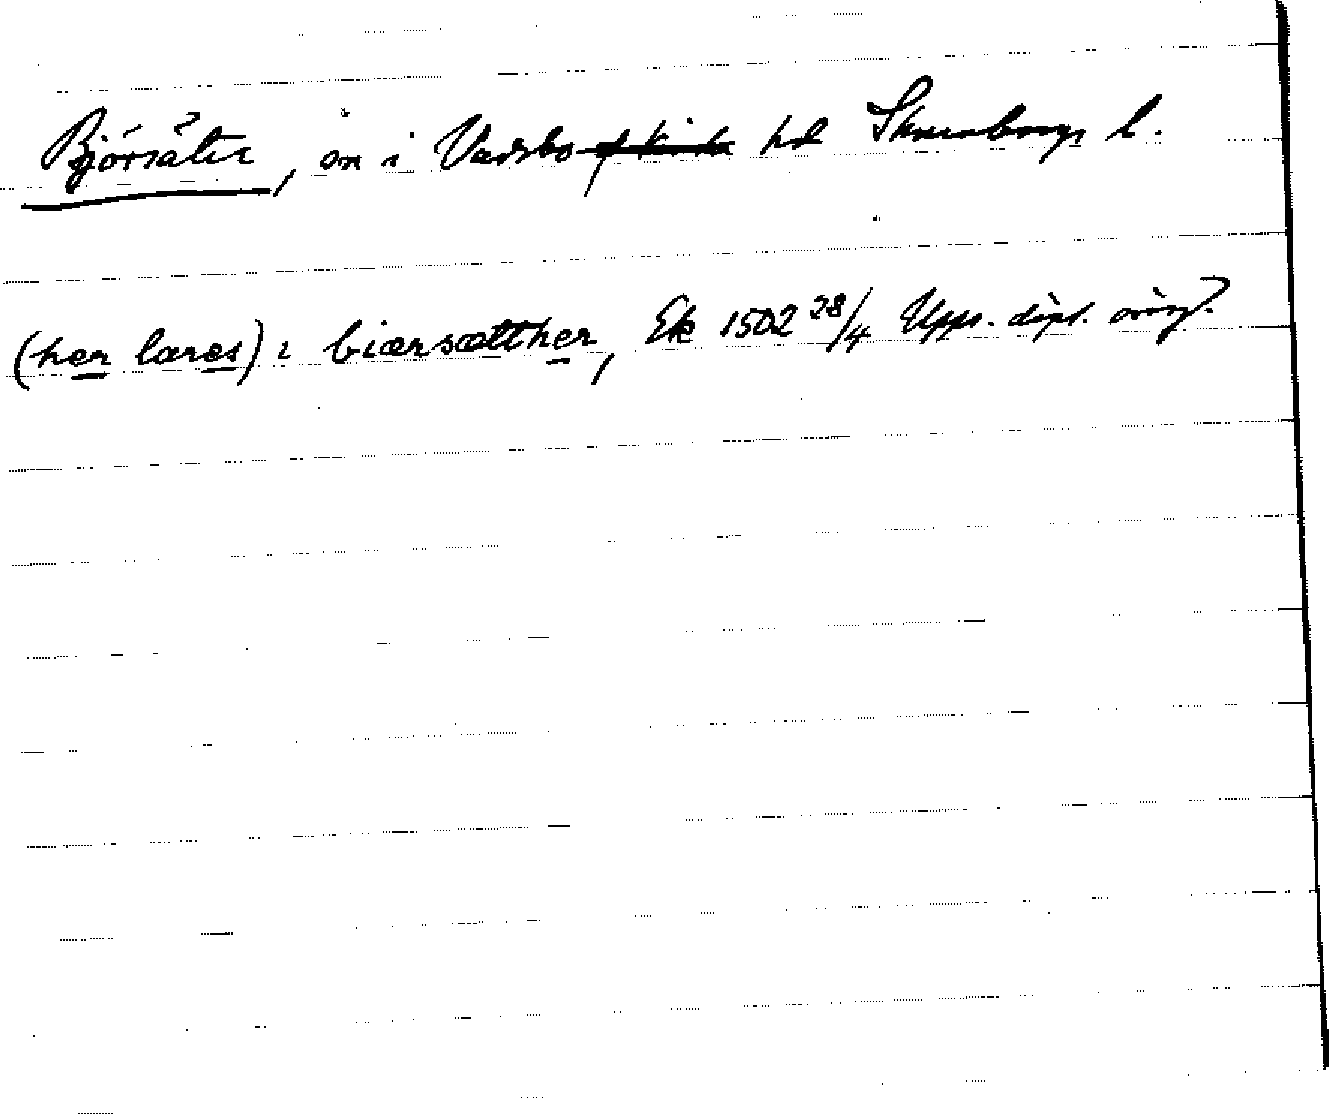 Björsäter, sn i Vadsbo hd Skaraborgs l.
(her lares) i biærsætther, Ek 1502 28/4 Upps. dipl. orig.